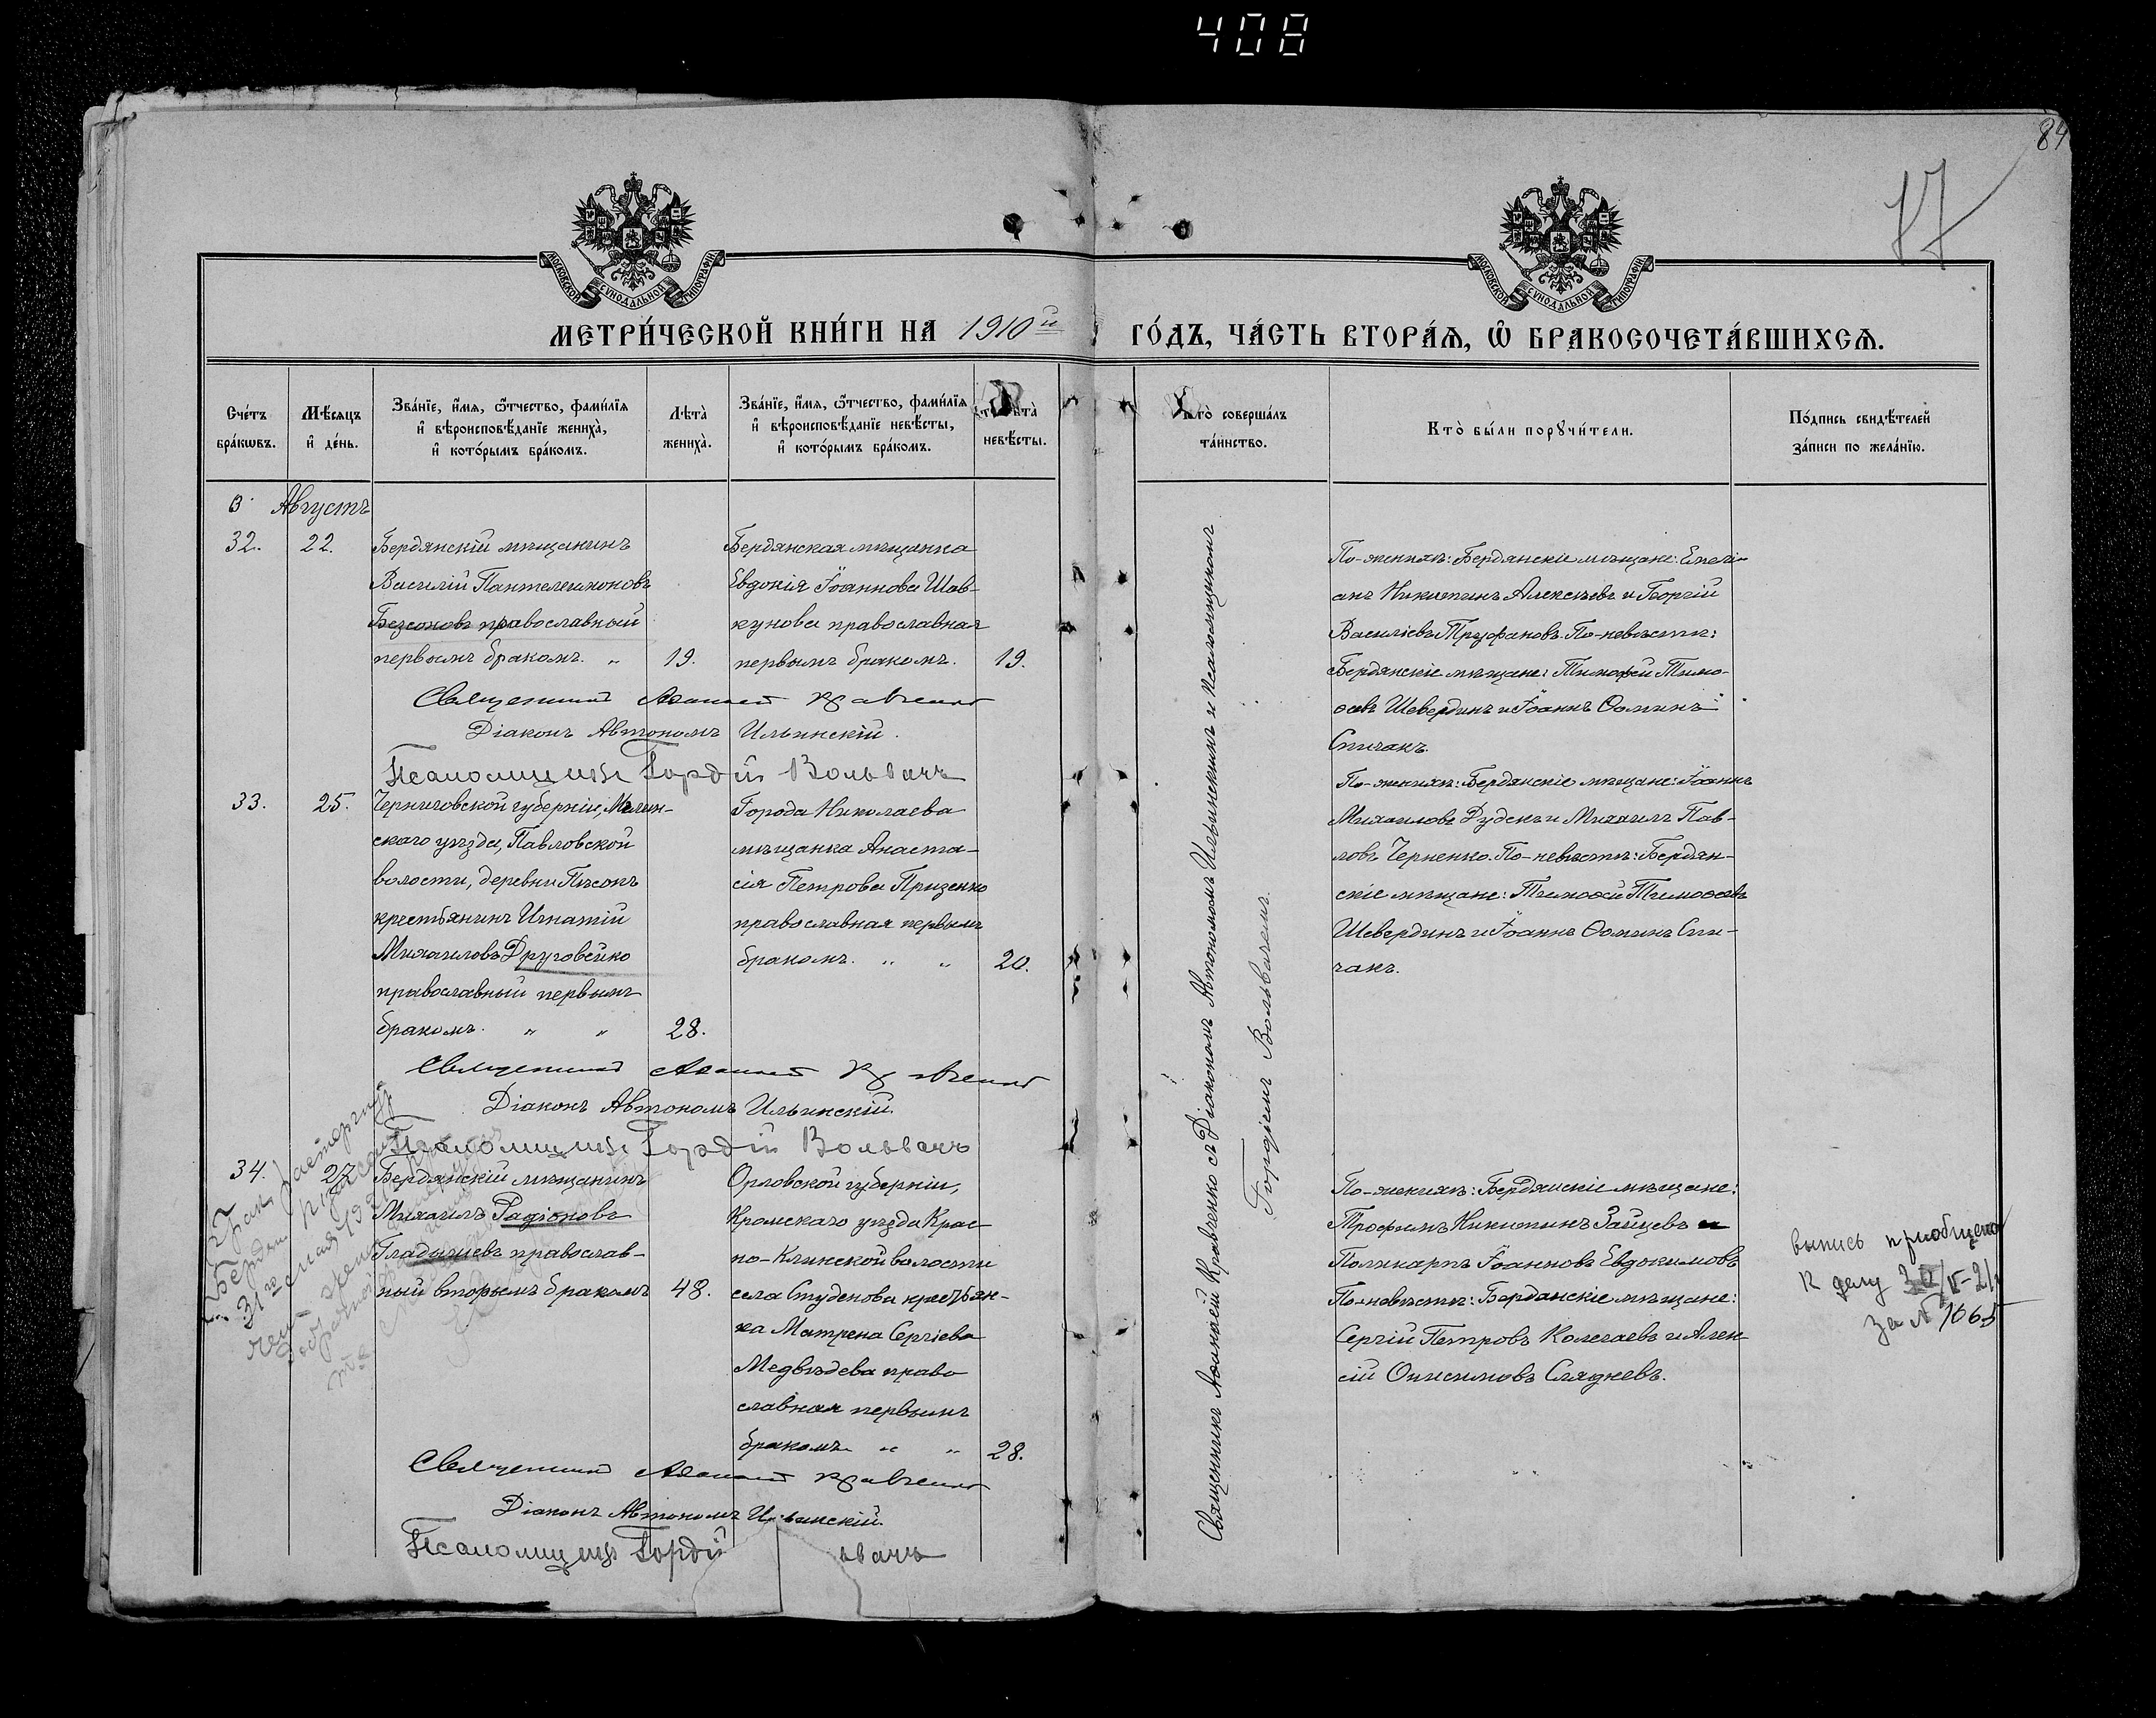 408
84
17
МОСКОВСКОЙ СУНОДАЛЬНОЙ ТИПОГРАФІИ
МОСКОВСКОЙ СУНОДАЛЬНОЙ ТИПОГРАФІИ
МЕТРИ́ЧЕСКОЙ КНИ́ГИ НА 1910й ГО́ДЪ, ЧА́СТЬ ВТОРА́Ѧ, Ѡ҆ БРАКОСОЧЕТА́ВШИХСѦ.
Сче́тъ бра́кѡвъ.
Мѣ́сѧцъ и҆ де́нь.
Зва́нїе, и҆́мѧ, ѻ҆́тчество, фами́лїѧ и҆ вѣроисповѣ́данїе жениха̀, и҆ кото́рымъ бра́комъ.
Лѣта̀ жениха̀.
Зва́нїе, и҆́мѧ, ѻ҆́тчество, фами́лїѧ и҆ вѣроисповѣ́данїе невѣ́сты, и҆ кото́рымъ бра́комъ.
невѣ́сты.
соверша́лъ та́инство.
Кто̀ бы́ли порꙋчи́тели.
По́дпись свидѣ́телей за́писи по жела́нїю.
Августъ
32.
22.
Бердянскій мѣщанинъ
Василій Пантелеимоновъ
Безсоновъ православный
первымъ бракомъ. „
19.
Бердянская мѣщанка
Евдокія Іоаннова Шав-
кунова православная
первымъ бракомъ.
19.
По-женихѣ: Бердянскіе мѣщане: Емелі-
анъ Никитинъ Алексѣевъ и Георгій
Василіевъ Труфановъ. По-невѣстѣ:
Бердянскіе мѣщане: Тимофей Тимо-
ѳеевъ Шевердинъ и Іоаннъ Ѳоминъ
Спичакъ.
Священникъ Аѳанасій Кравченко
Діаконъ Автономъ Ильинскій.
Псаломщикъ Гордій Вольвачъ
33.
25.
Черниговской губерніи, Мглин-
скаго уѣзда, Павловской
волости, деревни Пѣсокъ
крестьянинъ Игнатій
Михаиловъ Друговейко
православный первымъ
бракомъ. „ „
28.
Города Николаева
мѣщанка Анаста-
сія Петрова Призенко
православная первымъ
бракомъ. „ „
20.
По-женихѣ: Бердянскіе мѣщане: Іоаннъ
Михаиловъ Дудекъ и Михаилъ Пав-
ловъ Черненко. По-невѣстѣ: Бердян-
скіе мѣщане: Тимоѳей Тимоѳеевъ
Шевердинъ и Іоаннъ Ѳоминъ Спи-
чакъ.
Священникъ Аѳанасій Кравченко
Діаконъ Автономъ Ильинскій.
Псаломщикъ Гордій Вольвачъ
34.
27
Бердянскій мѣщанинъ
Михаилъ Радіоновъ
Гладышевъ православ-
ный вторымъ бракомъ
48.
Орловской губерніи,
Кромскаго уѣзда Крас
но-Клинской волости
села Студенова крестьян-
ка Матрена Сергіева
Медвѣдева право
славная первымъ
бракомъ „ „
28.
По-женихѣ: Бердянскіе мѣщане:
Трофимъ Никитинъ Зайцевъ и
Поликарпъ Іоанновъ Евдокимовъ
По-невѣстѣ: Бердянскіе мѣщане:
Сергій Петровъ Колегаевъ и Алек
сій Онисимовъ Слядневъ.
выпись приобщена
к делу
за № 1065
Священникъ Аѳанасій Кравченко
Діаконъ Автономъ Ильинскій.
Псаломщикъ Гордій ьвачъ
Священникъ Аѳанасій Кравченко съ Діакономъ Автономомъ Ильинскимъ и Псаломщикомъ
Гордіемъ Вольвачемъ.
Брак расторгнут